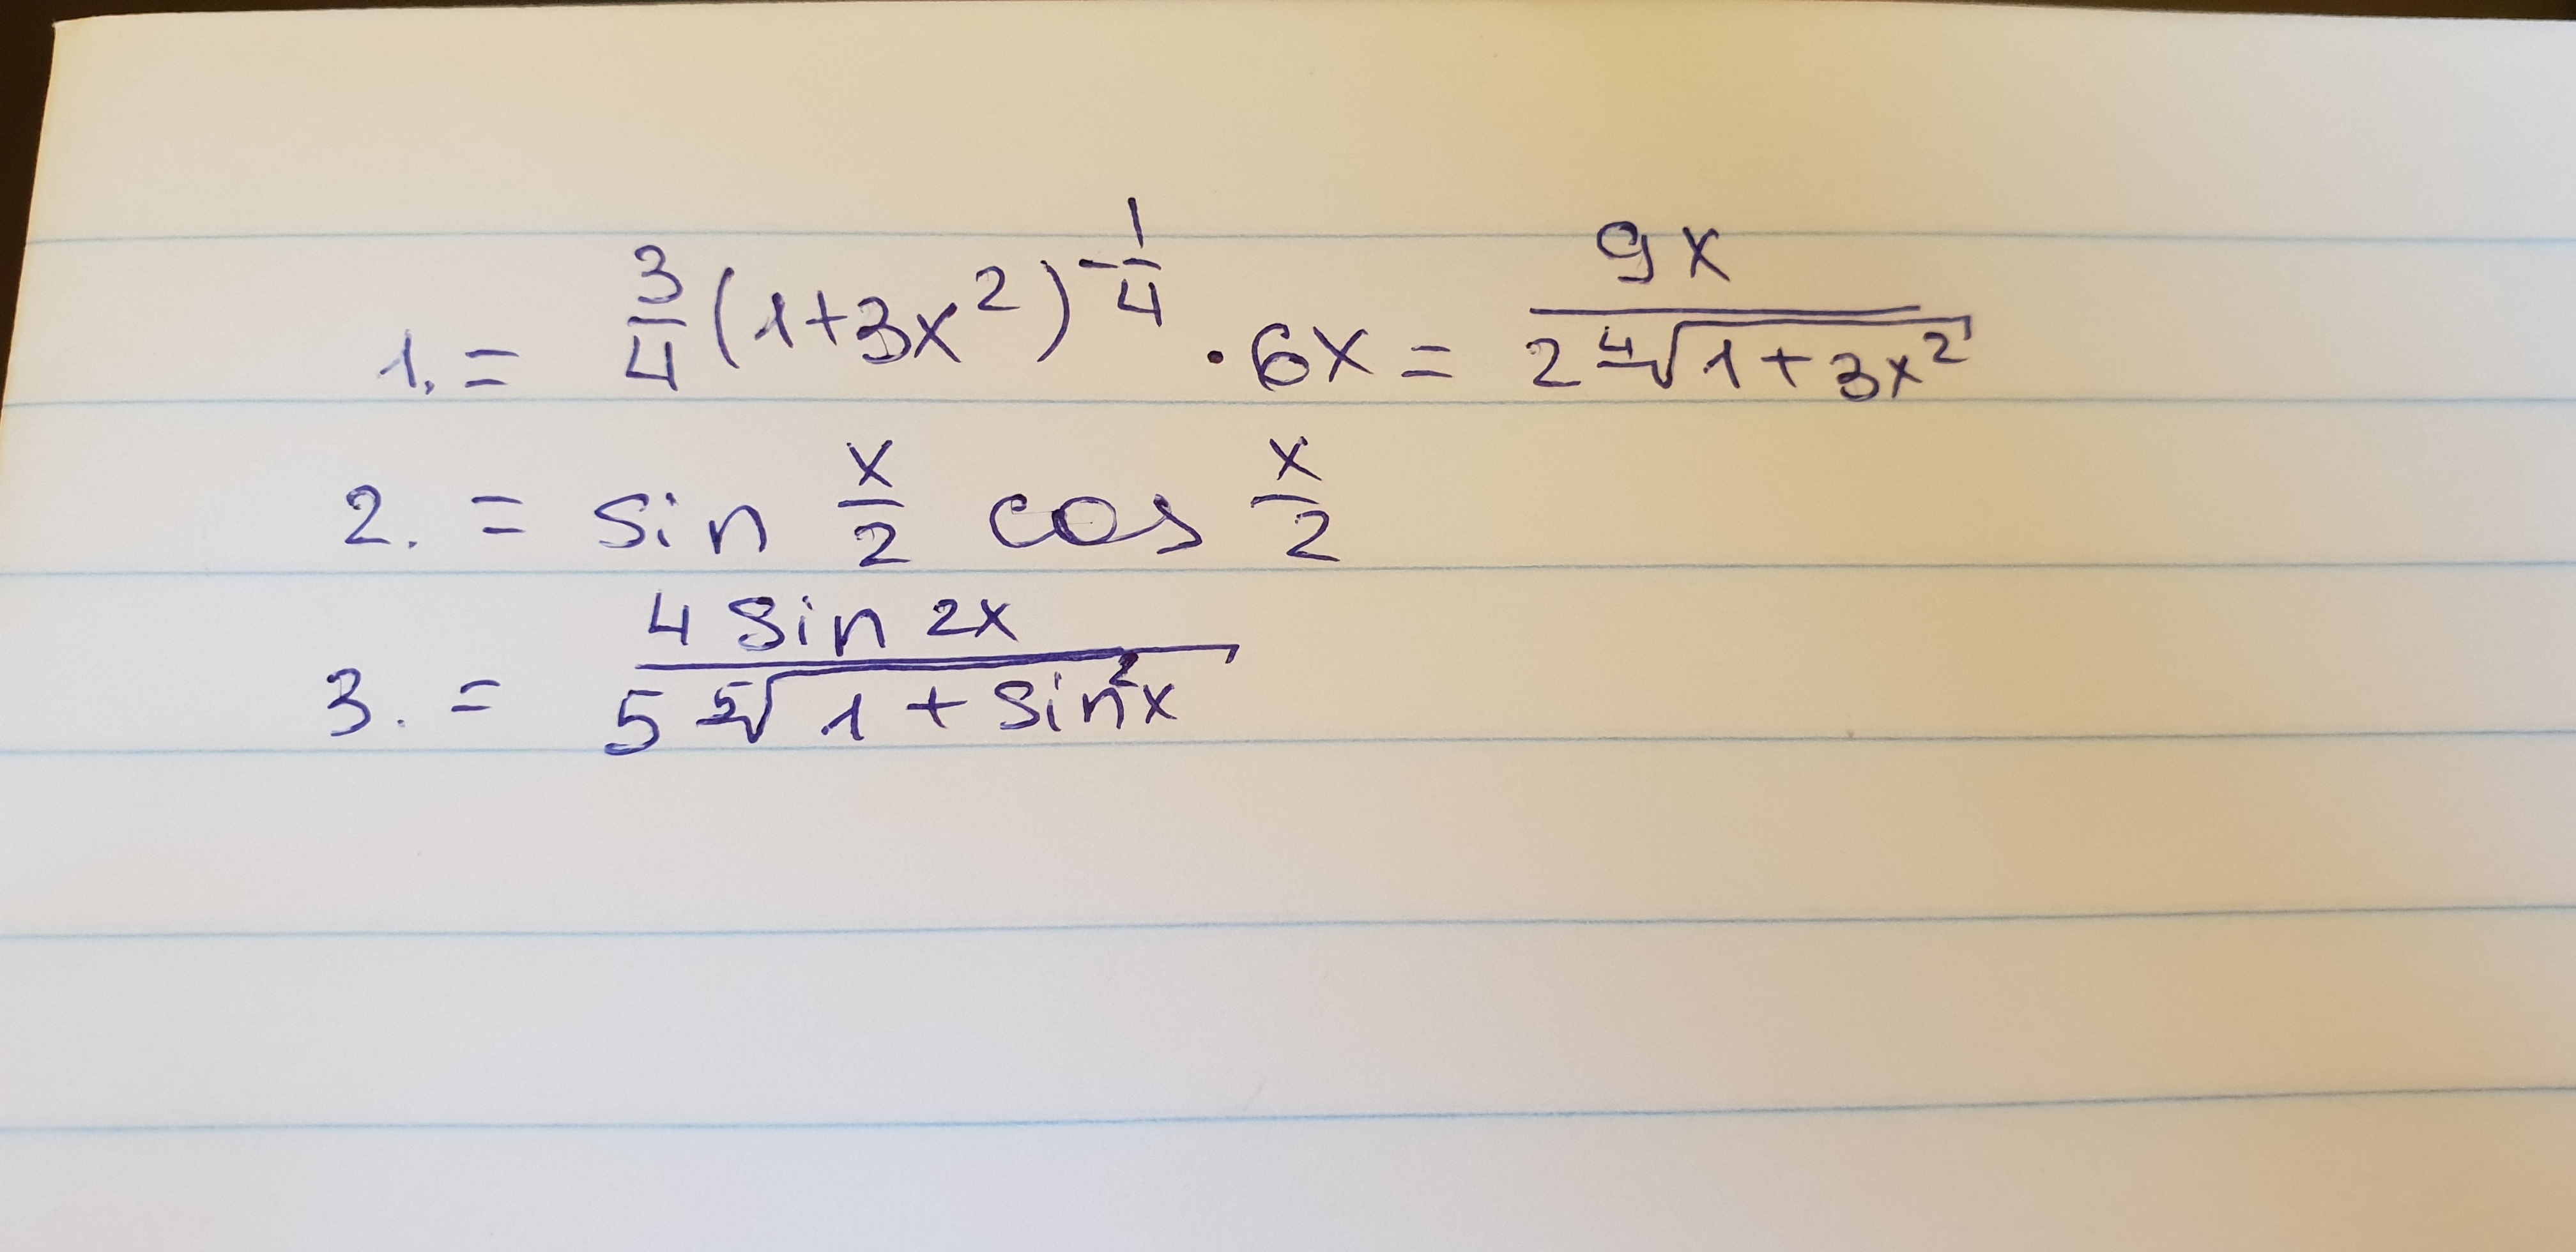 1. = \frac{3}{4}(1+3x^2)^{-\frac{1}{4}} \cdot 6x = \frac{9x}{2\sqrt[4]{1+3x^2}}
2. = sin \frac{x}{2} cos \frac{x}{2}
3. = \frac{4 sin 2x}{5\sqrt[5]{1+sin^2x}}